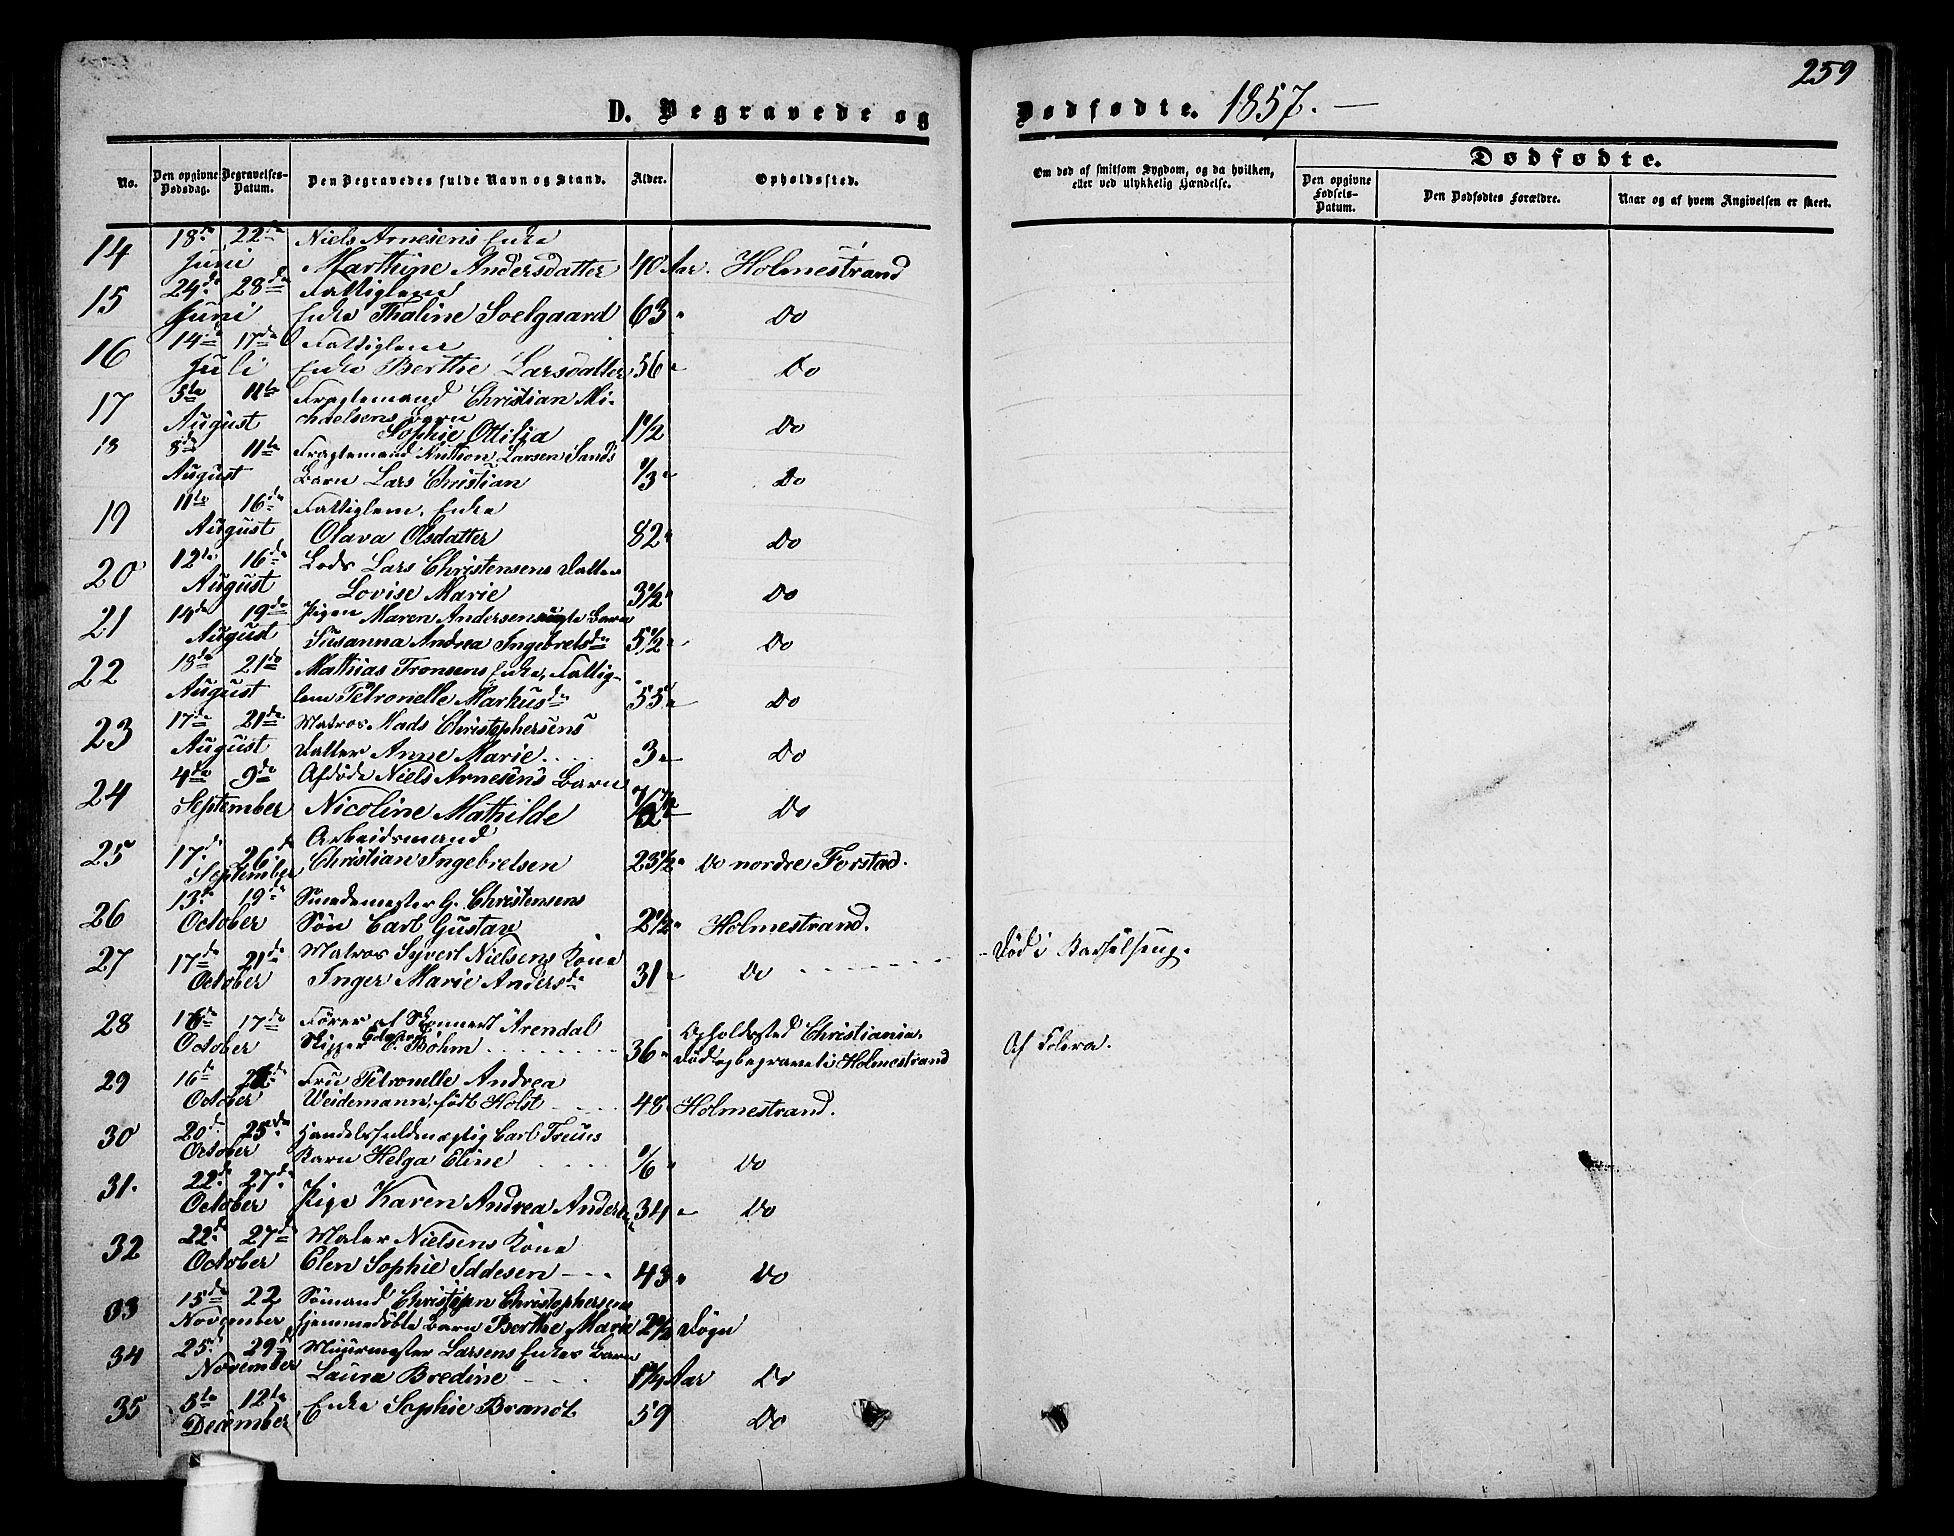 259
D. Begravede og Dødfødte. 1857. —
No.
Den opgivne Dødsdag.
Begravelses-Datum.
Den Begravedes fulde Navn og Stand.
Alder.
Opholdssted.
Om død af smitsom Sygdom, og da hvilken, eller ved ulykkelig Hændelse.
Dødfødte.
Den opgivne Fødsels-Datum.
Den Dødfødtes Forældre.
Naar og af hvem Angivelsen er skeet.
14 18de 22de Niels Arnesens Enke
Juni Marthine Andersdatter 40 Aar. Holmestrand
15 24de 28de Fattiglem
Juni Enke Thaline Soelgaard 63 " Do
16 14de 17de Fattiglem
Juli Enke Berthe Larsdatter 56 " Do
17 5te 11te Fragtemand Christian Mi-
August chaelsens Barn
Sophie Ottilia 1 1/2 Do
18 8de 11te Fragtemand Anthon Larsen Sands
August Barn Lars Christian 1/3 " Do
19 11te 16de Fattiglem, Enke
August Olava Olsdatter 82 " Do
20 12te 16de Lods Lars Christensens Datter
August Lovise Marie 3 1/2 " Do
21 14de 19de Pigen Maren Andersens uægte Barn
August Susanna Andrea Ingebretsda 5 1/2 " Do
22 18de 21de Mathias Tronsens Enke, Fattig-
August lem Petronelle Markusda 55 " Do
23 17de 21de Matros Mads Christophersens
August Datter Anne Marie 3 " Do
24 4de 9de Afdøde Niels Arnesens Barn
September Nicoline Mathilde Do
25 17de 26de Arbeidsmand
September Christian Ingebretsen 23 1/2 " Do nordre Forstad.
26 13de 19de Smedemester G. Christensens
October Søn Carl Gustav 2 1/2 " Holmestrand.
27 17de 21de Matros Syvert Nielsens Kone
October Inger Marie Andersda 31 " Do Død i Barselseng.
28 16de 17de Fører af Skonnert Arendal Opholdssted Christiania,
October Skipper C. Bøhm 36 " Død og begravet i Holmestrand Af Colera.
29 16de Fru Petronelle Andrea
October Weidemann, født Holst 48 Holmestrand.
30 20de 25de Handelsfuldmægtig Carl Treius
October Barn Helga Eline 1/6 " Do
31. 22de 27de Pige Karen Andrea Anders 34 " Do
October
32 22de 27de Maler Nielsens Kone
October Elen Sophie Iddesen 43 " Do
33 15de 22 Sømand Christian Christophersens
November hjemmedøbte Barn Berthe Marie 2 1/2 Døgn
34 25de 29de Muurmester Larsens Enkes Barn
November Laura Bredine 1 1/4 Aar Do
35 5te 12te Enke Sophie Brandt 59 Do
December